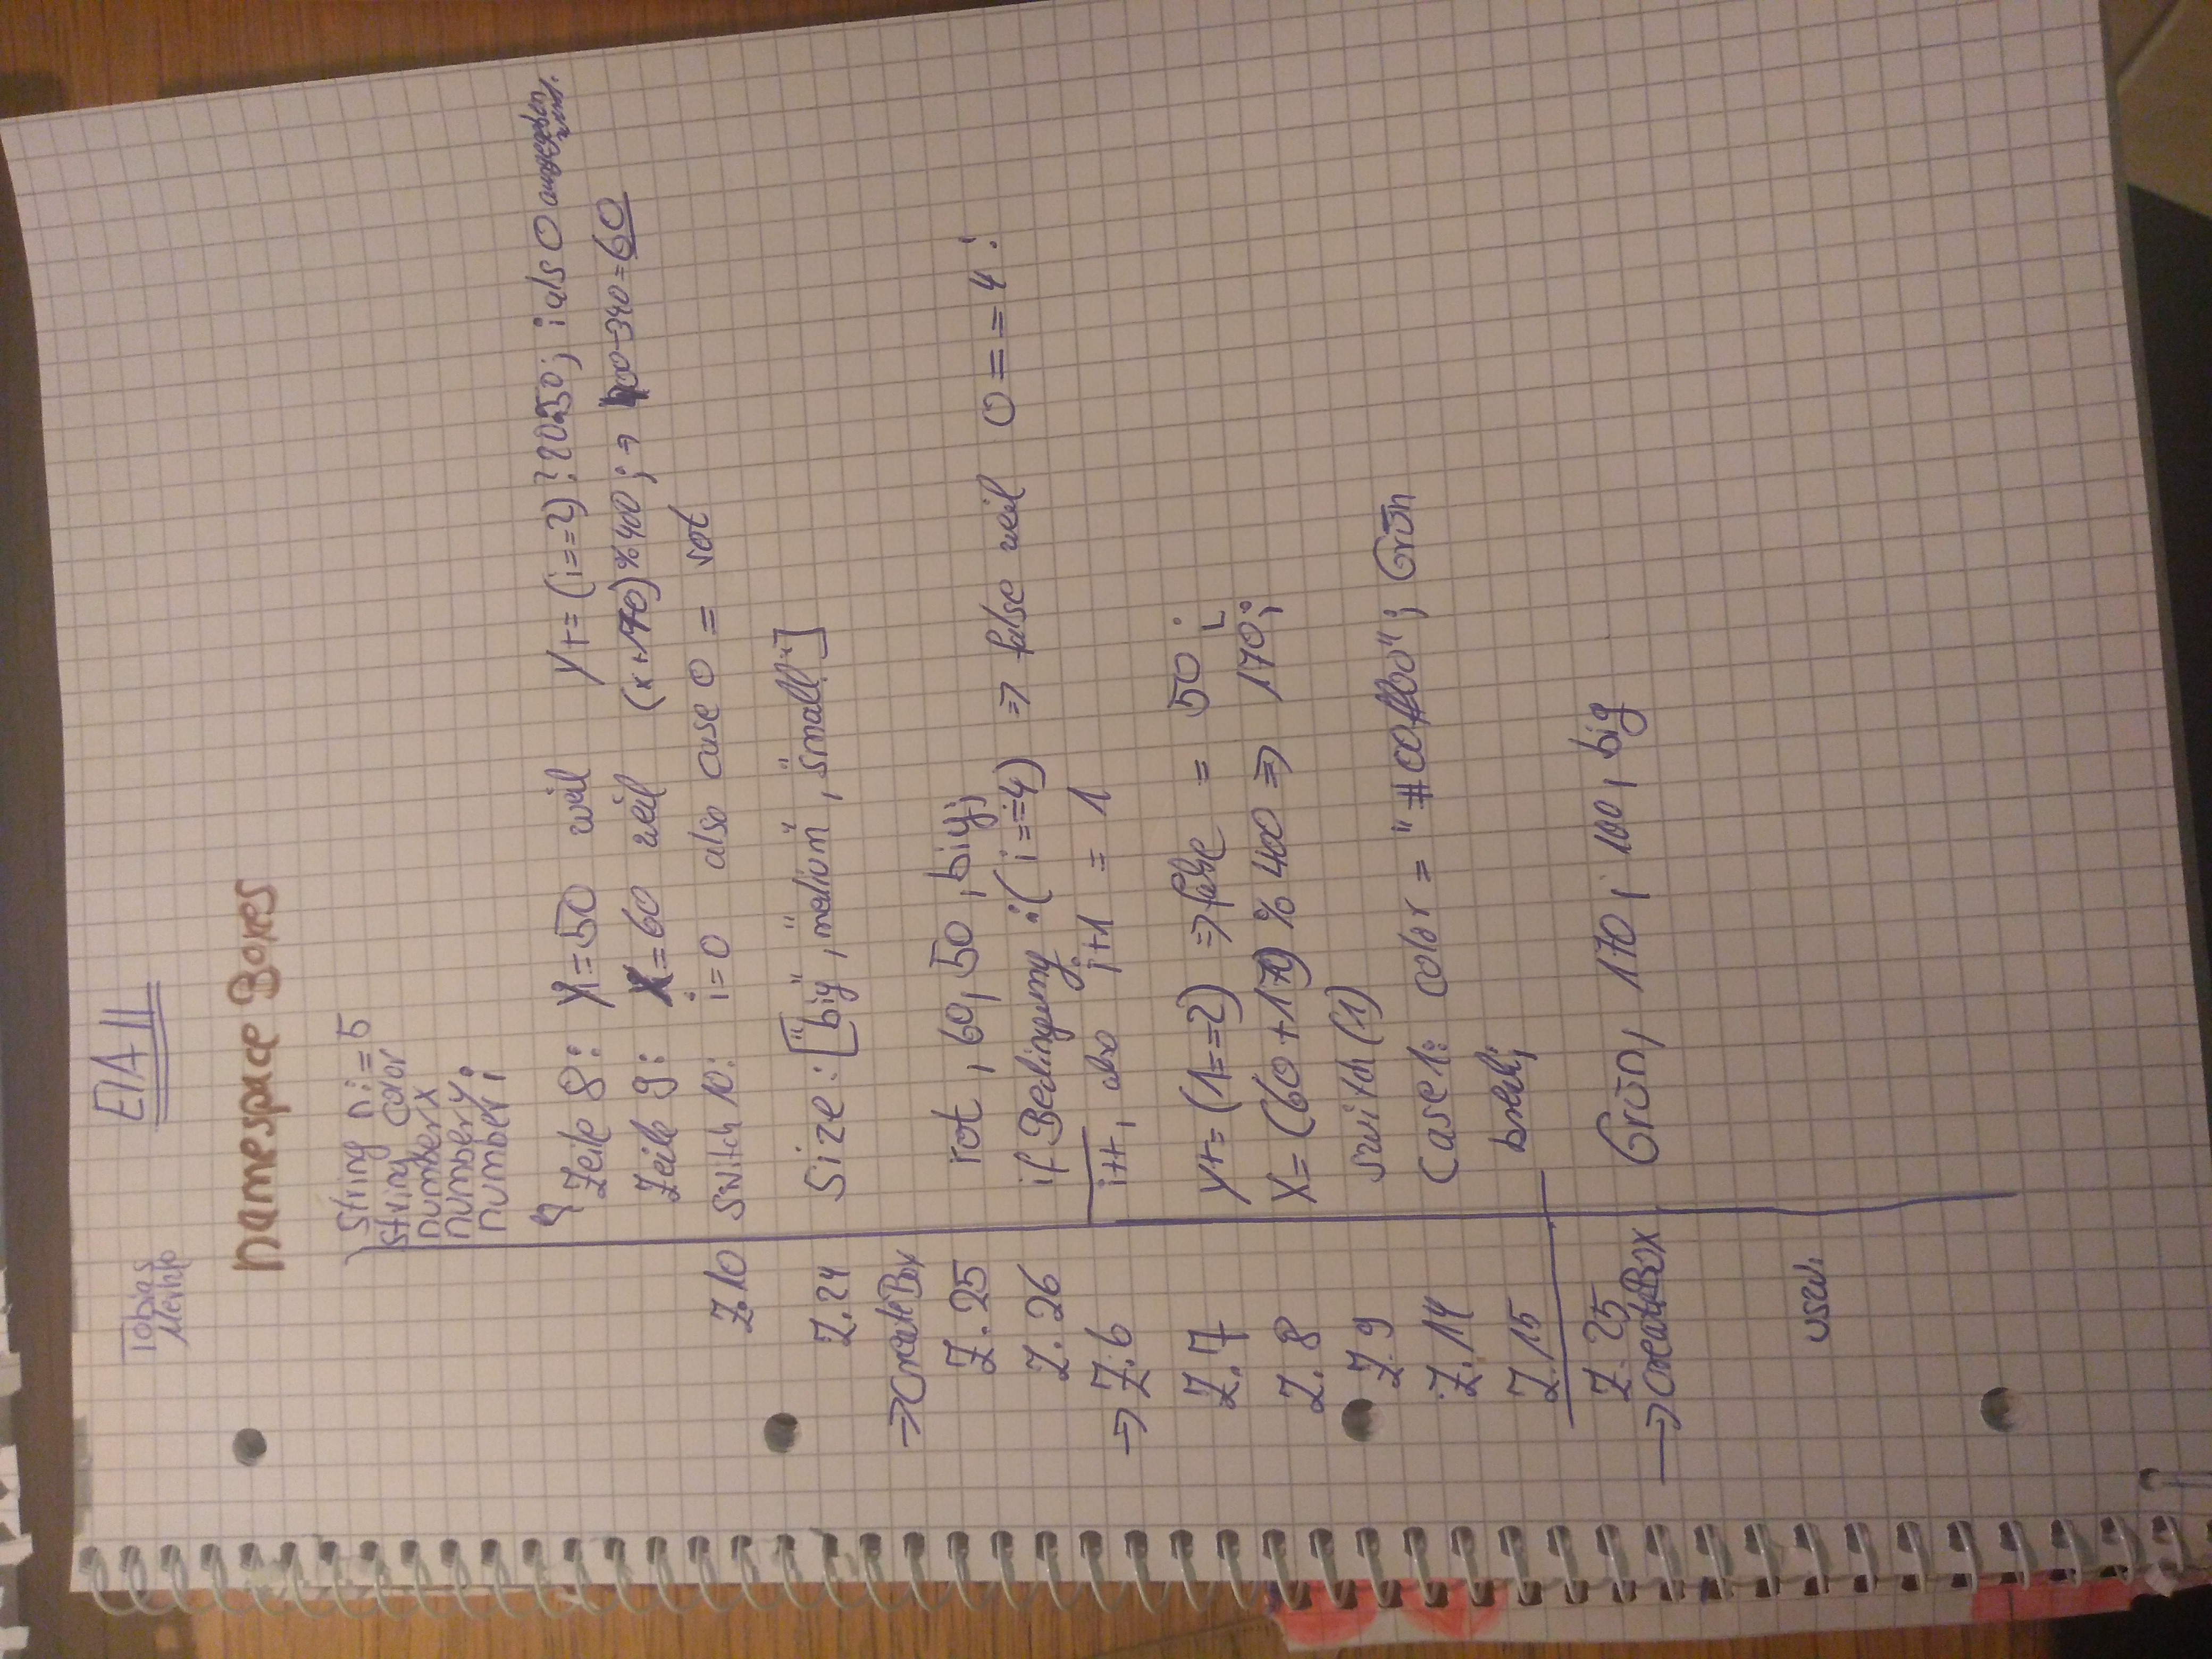 EIA II
Tobias
namespace Boxes
string n: = 5
string color
number x
number y
number i
Zeile 8: y=50 weil y+=(i==2)?20:50; i als 0 ausgegeben wird.
Zeile 9: X=60 weil (x+170)%400; ⇒ 400-340=60
Z.10 switch 10: i=0 also case 0 = rot
Z.24 Size: ["big", "medium", "small"]
⇒ CreateBox
Z.25 rot, 60, 50, big;
Z.26 if Bedingung: (i==4) ⇒ false weil 0==4!
→ Z.6 i++, also i+1 = 1
Z.7 y+=(1==2) ⇒ false = 50;
Z.8 X=(60+170)%400 ⇒ 170;
Z.9 switch(1)
Z.14 Case1: color = "#00ff00"; Grün
Z.15 break;
Z.25 Grün, 170, 100, big
→ CreateBox
usw.